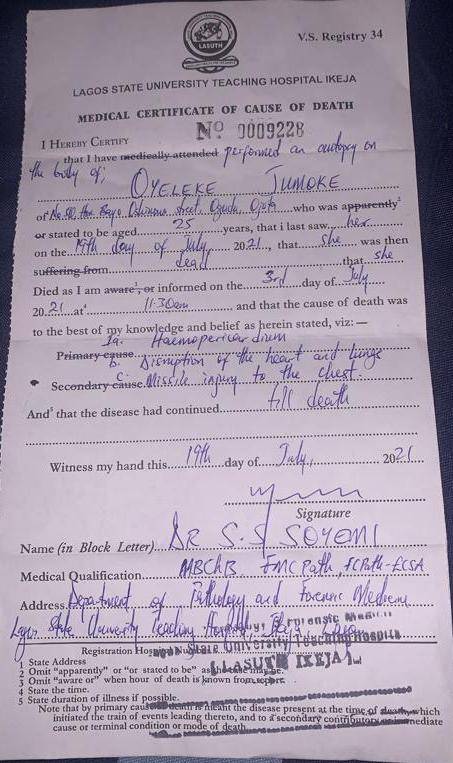 LASUTH
V.S. Registry 34
LAGOS STATE UNIVERSITY TEACHING HOSPITAL IKEJA
MEDICAL CERTIFICATE OF CAUSE OF DEATH
Nº 0009228
I HEREBY CERTIFY
that I have medically attended performed an autopsy on
the body of;
OYELEKE JUMOKE
of No. street, Ojota who was apparently²
or stated to be aged 25 years, that i last saw her
on the 19th day of July 2021, that she was then
suffering from dead that she
Died as I am aware³, or informed on the 3rd day of July
2021 at⁴ 11.30am and that the cause of death was
to the best of my knowledge and belief as herein stated, viz: —
Ia. Haemopericardium
Primary cause b. Disruption of the heart and lungs
Secondary cause c. Missile injury to the chest.
And⁵ that the disease had continued till death
Witness my hand this 19th day of July, 2021
Signature
Name (in Block Letter) DR S.S SOYEMI
Medical Qualification MBCHB, FMCPath, FCPath-ECSA
Address Department of Pathology and Forensic Medicine
Lagos State University Teaching Hospital, Ikeja
Forensic Medicine
State University Teaching Hospital
(LASUTH IKEJA)
1 State Address
2 Omit "apparently" or "or stated to be" as the case may be.
3 Omit "aware or" when hour of death is known from
4 State the time.
5 State duration of illness if possible.
Note that by primary cause death is meant the disease present at the time of death, which
initiated the train of events leading thereto, and to a secondary contributory or immediate
cause or terminal condition or mode of death